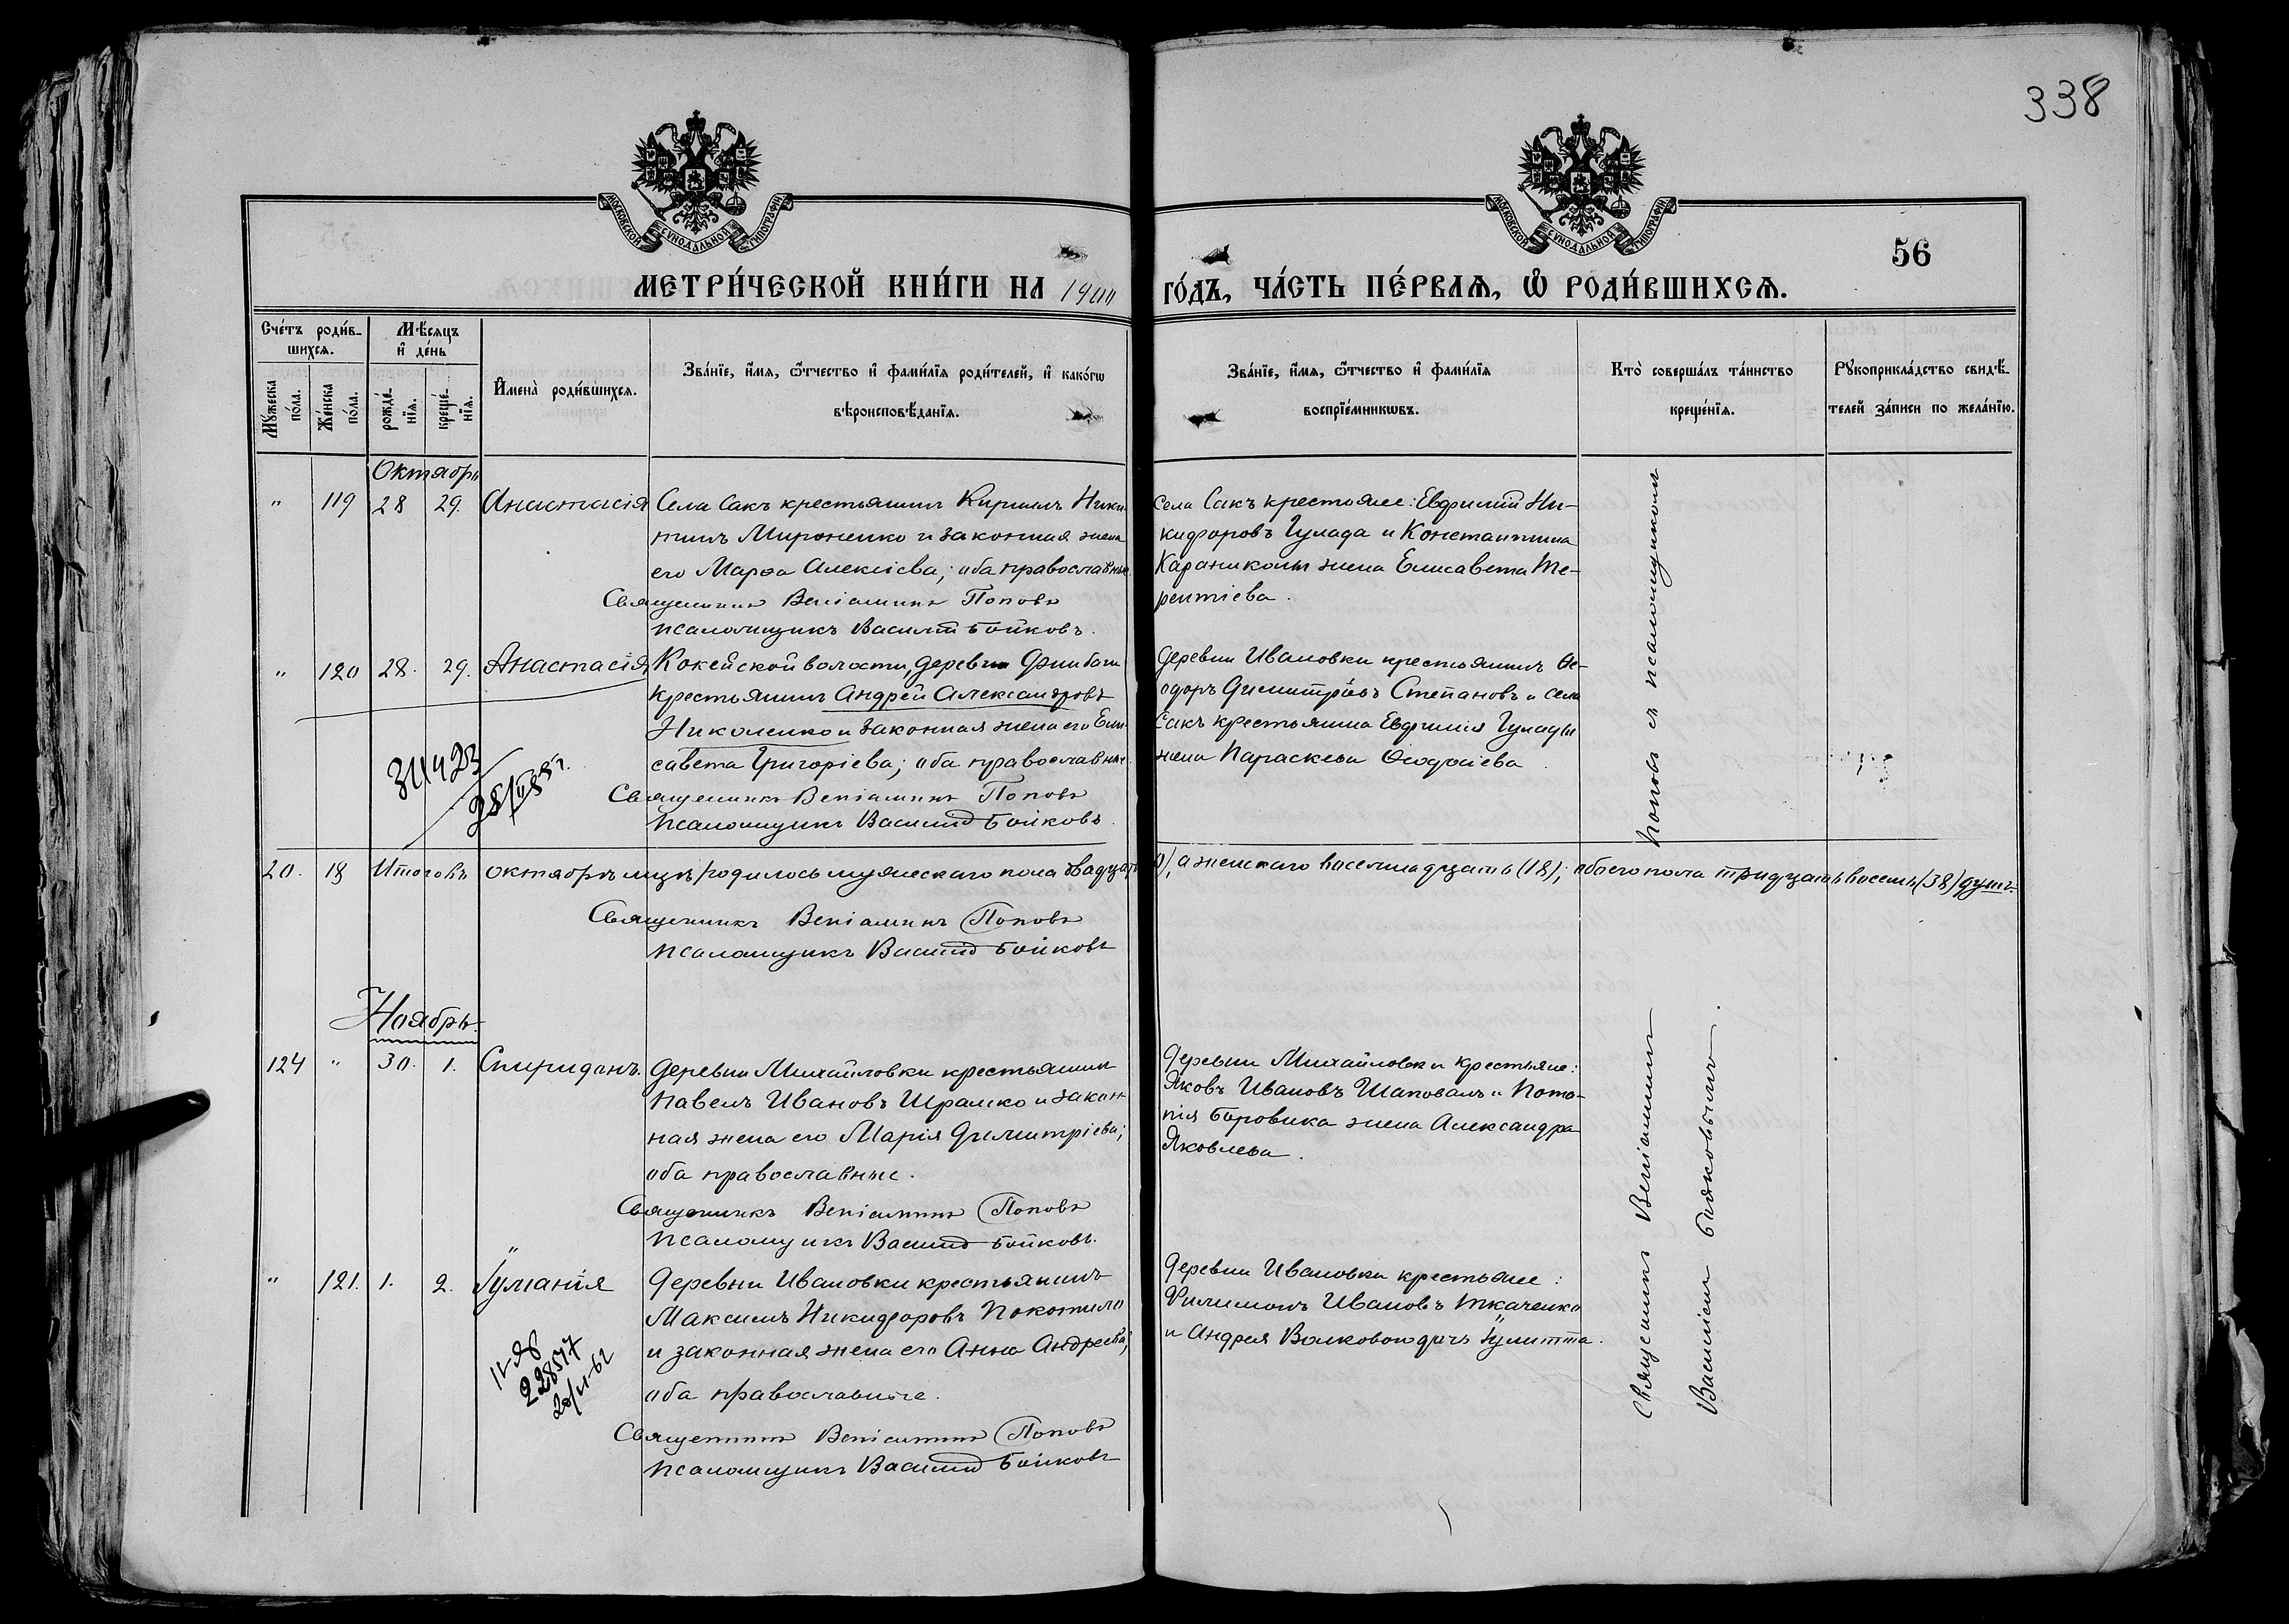 338
МОСКОВСКОЙ СѴНОДАЛЬНОЙ ТИПОГРАФІИ
МОСКОВСКОЙ СѴНОДАЛЬНОЙ ТИПОГРАФІИ
56
МЕТРИ́ЧЕСКОЙ КНИ́ГИ НА 1900 ГО́ДЪ, ЧА́СТЬ ПЕ́РВАѦ, Ѡ҆ РОДИ́ВШИХСѦ.
Сче́тъ роди́в-
шихсѧ.
Мꙋ́жеска по́ла.
Же́нска по́ла.
Мѣ́сѧцъ
и҆ де́нь
рожде́-
нїѧ.
креще́-
нїѧ.
И҆мена̀ роди́вшихсѧ.
Зва́нїе, и҆́мѧ, ѻ҆́тчество и҆ фамі́лїѧ роди́телей, и҆ како́гѡ
вѣроисповѣ́данїѧ.
Зва́нїе, и҆́мѧ, ѻ҆́тчество и҆ фамі́лїѧ
воспрїе́мникѡвъ.
Кто̀ соверша́лъ та́инство
креще́нїѧ.
Рꙋкоприкла́дство свидѣ́-
телей за́писи по жела́нїю.
Октябрь
" 119 28 29. Анастасія
Села Сакъ крестьянинъ Кириллъ Ники-
тинъ Мироненко и законная жена
его Марѳа Алексіева; оба православные.
Священникъ Веніаминъ Поповъ
Псаломщикъ Василій Бойковъ.
Села Сакъ крестьяне: Евфимій Ни-
кифоровъ Гулада и Константина
жена Елисавета Те-
рентіева.
" 120 28. 29. Анастасія
Кокейской волости, деревни
крестьянинъ Андрей Александровъ
Николенко и законная жена его Ели-
савета Григоріева; оба православные
Священникъ Веніаминъ Поповъ
Псаломщикъ Василій Бойковъ.
Деревни Ивановки крестьянинъ Ѳе-
одоръ Димитріевъ Степановъ и села
Сакъ крестьянина Евфимія Гулады
жена Параскева Ѳеодосіева
20. 18 Итого въ октябрѣ мцѣ родилось мужескаго пола двадцать (20), а женскаго восемнадцать (18); обоего пола тридцать восемь (38) душъ.
Священникъ Веніаминъ Поповъ
Псаломщикъ Василій Бойковъ
Ноябрь.
124 " 30. 1. Спиридонъ.
Деревни Михайловки крестьянинъ
Павелъ Ивановъ Шрамко и закон-
ная жена его Марія Димитріева;
оба православные.
Священникъ Веніаминъ Поповъ
Псаломщикъ Василій Бойковъ.
Деревни Михайловки крестьяне:
Яковъ Ивановъ Шаповалъ и Пота-
пія Боровика жена Александра
Яковлева.
" 121. 1. 2. Іуліанія
Деревни Ивановки крестьянинъ
Максимъ Никифоровъ Покотило
и законная жена его Анна Андреева;
оба православные.
Священникъ Веніаминъ Поповъ
Псаломщикъ Василій Бойковъ
Деревни Ивановки крестьяне:
Филимонъ Ивановъ Ткаченко
и Андрея дочь Іулитта.
Священникъ Веніаминъ Поповъ съ псаломщикомъ
Василіемъ Бойковымъ.